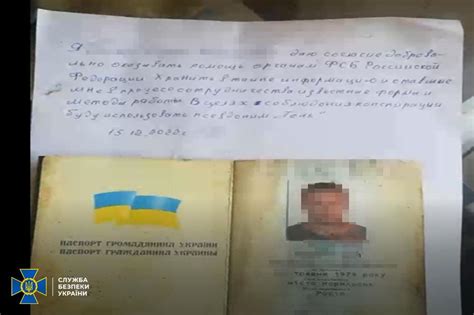 Я даю согласие доброво-
льно оказывать помощь органам ФСБ Российской
Федерации Хранить в тайне информацию и ставшие
мне в процессе сотрудничества известные формы и
методы работы В целях соблюдения конспирации
буду использовать псевдоним „Тень"
15.12.2022г.
ПАСПОРТ ГРОМАДЯНИНА УКРАЇНИ
ПАСПОРТ ГРАЖДАНИНА УКРАИНЫ
травня 1979 року
місто Норильськ
Росія
СЛУЖБА
БЕЗПЕКИ
УКРАЇНИ